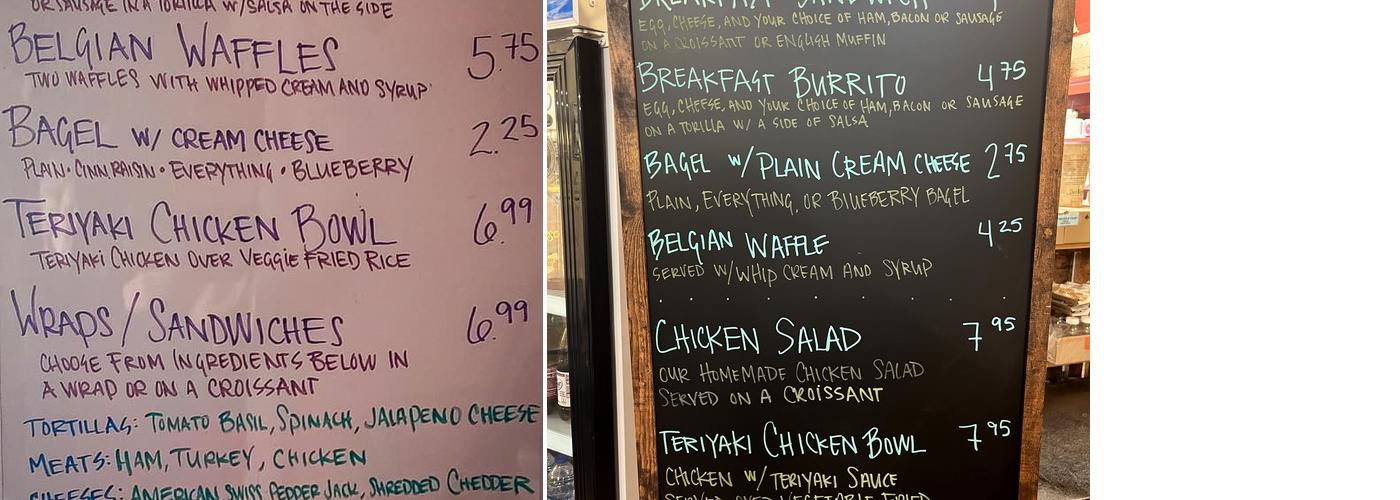 OR SAUSAGE IN A TORTILLA W/SALSA ON THE SIDE
BELGIAN WAFFLES 5.75
TWO WAFFLES WITH WHIPPED CREAM AND SYRUP
BAGEL W/ CREAM CHEESE 2.25
PLAIN • CINN.RAISIN • EVERYTHING • BLUEBERRY
TERIYAKI CHICKEN BOWL 6.99
TERIYAKI CHICKEN OVER VEGGIE FRIED RICE
WRAPS/SANDWICHES 6.99
CHOOSE FROM INGREDIENTS BELOW IN
A WRAP OR ON A CROISSANT
TORTILLAS: TOMATO BASIL, SPINACH, JALAPENO CHEESE
MEATS: HAM, TURKEY, CHICKEN
CHEESES: AMERICAN SWISS PEPPER JACK, SHREDDED CHEDDER
BREAKFAST SANDWICH
EGG, CHEESE, AND YOUR CHOICE OF HAM, BACON OR SAUSAGE
ON A CROISSANT OR ENGLISH MUFFIN
BREAKFAST BURRITO 4 75
EGG, CHEESE, AND YOUR CHOICE OF HAM, BACON OR SAUSAGE
ON A TORILLA W/ A SIDE OF SALSA
BAGEL W/PLAIN CREAM CHEESE 2 75
PLAIN, EVERYTHING, OR BLUEBERRY BAGEL
BELGIAN WAFFLE 4 25
SERVED W/WHIP CREAM AND SYRUP
CHICKEN SALAD 7 95
OUR HOMEMADE CHICKEN SALAD
SERVED ON A CROISSANT
TERIYAKI CHICKEN BOWL 7 95
CHICKEN W/ TERIYAKI SAUCE
SERVED OVER VEGETABLE FRIED